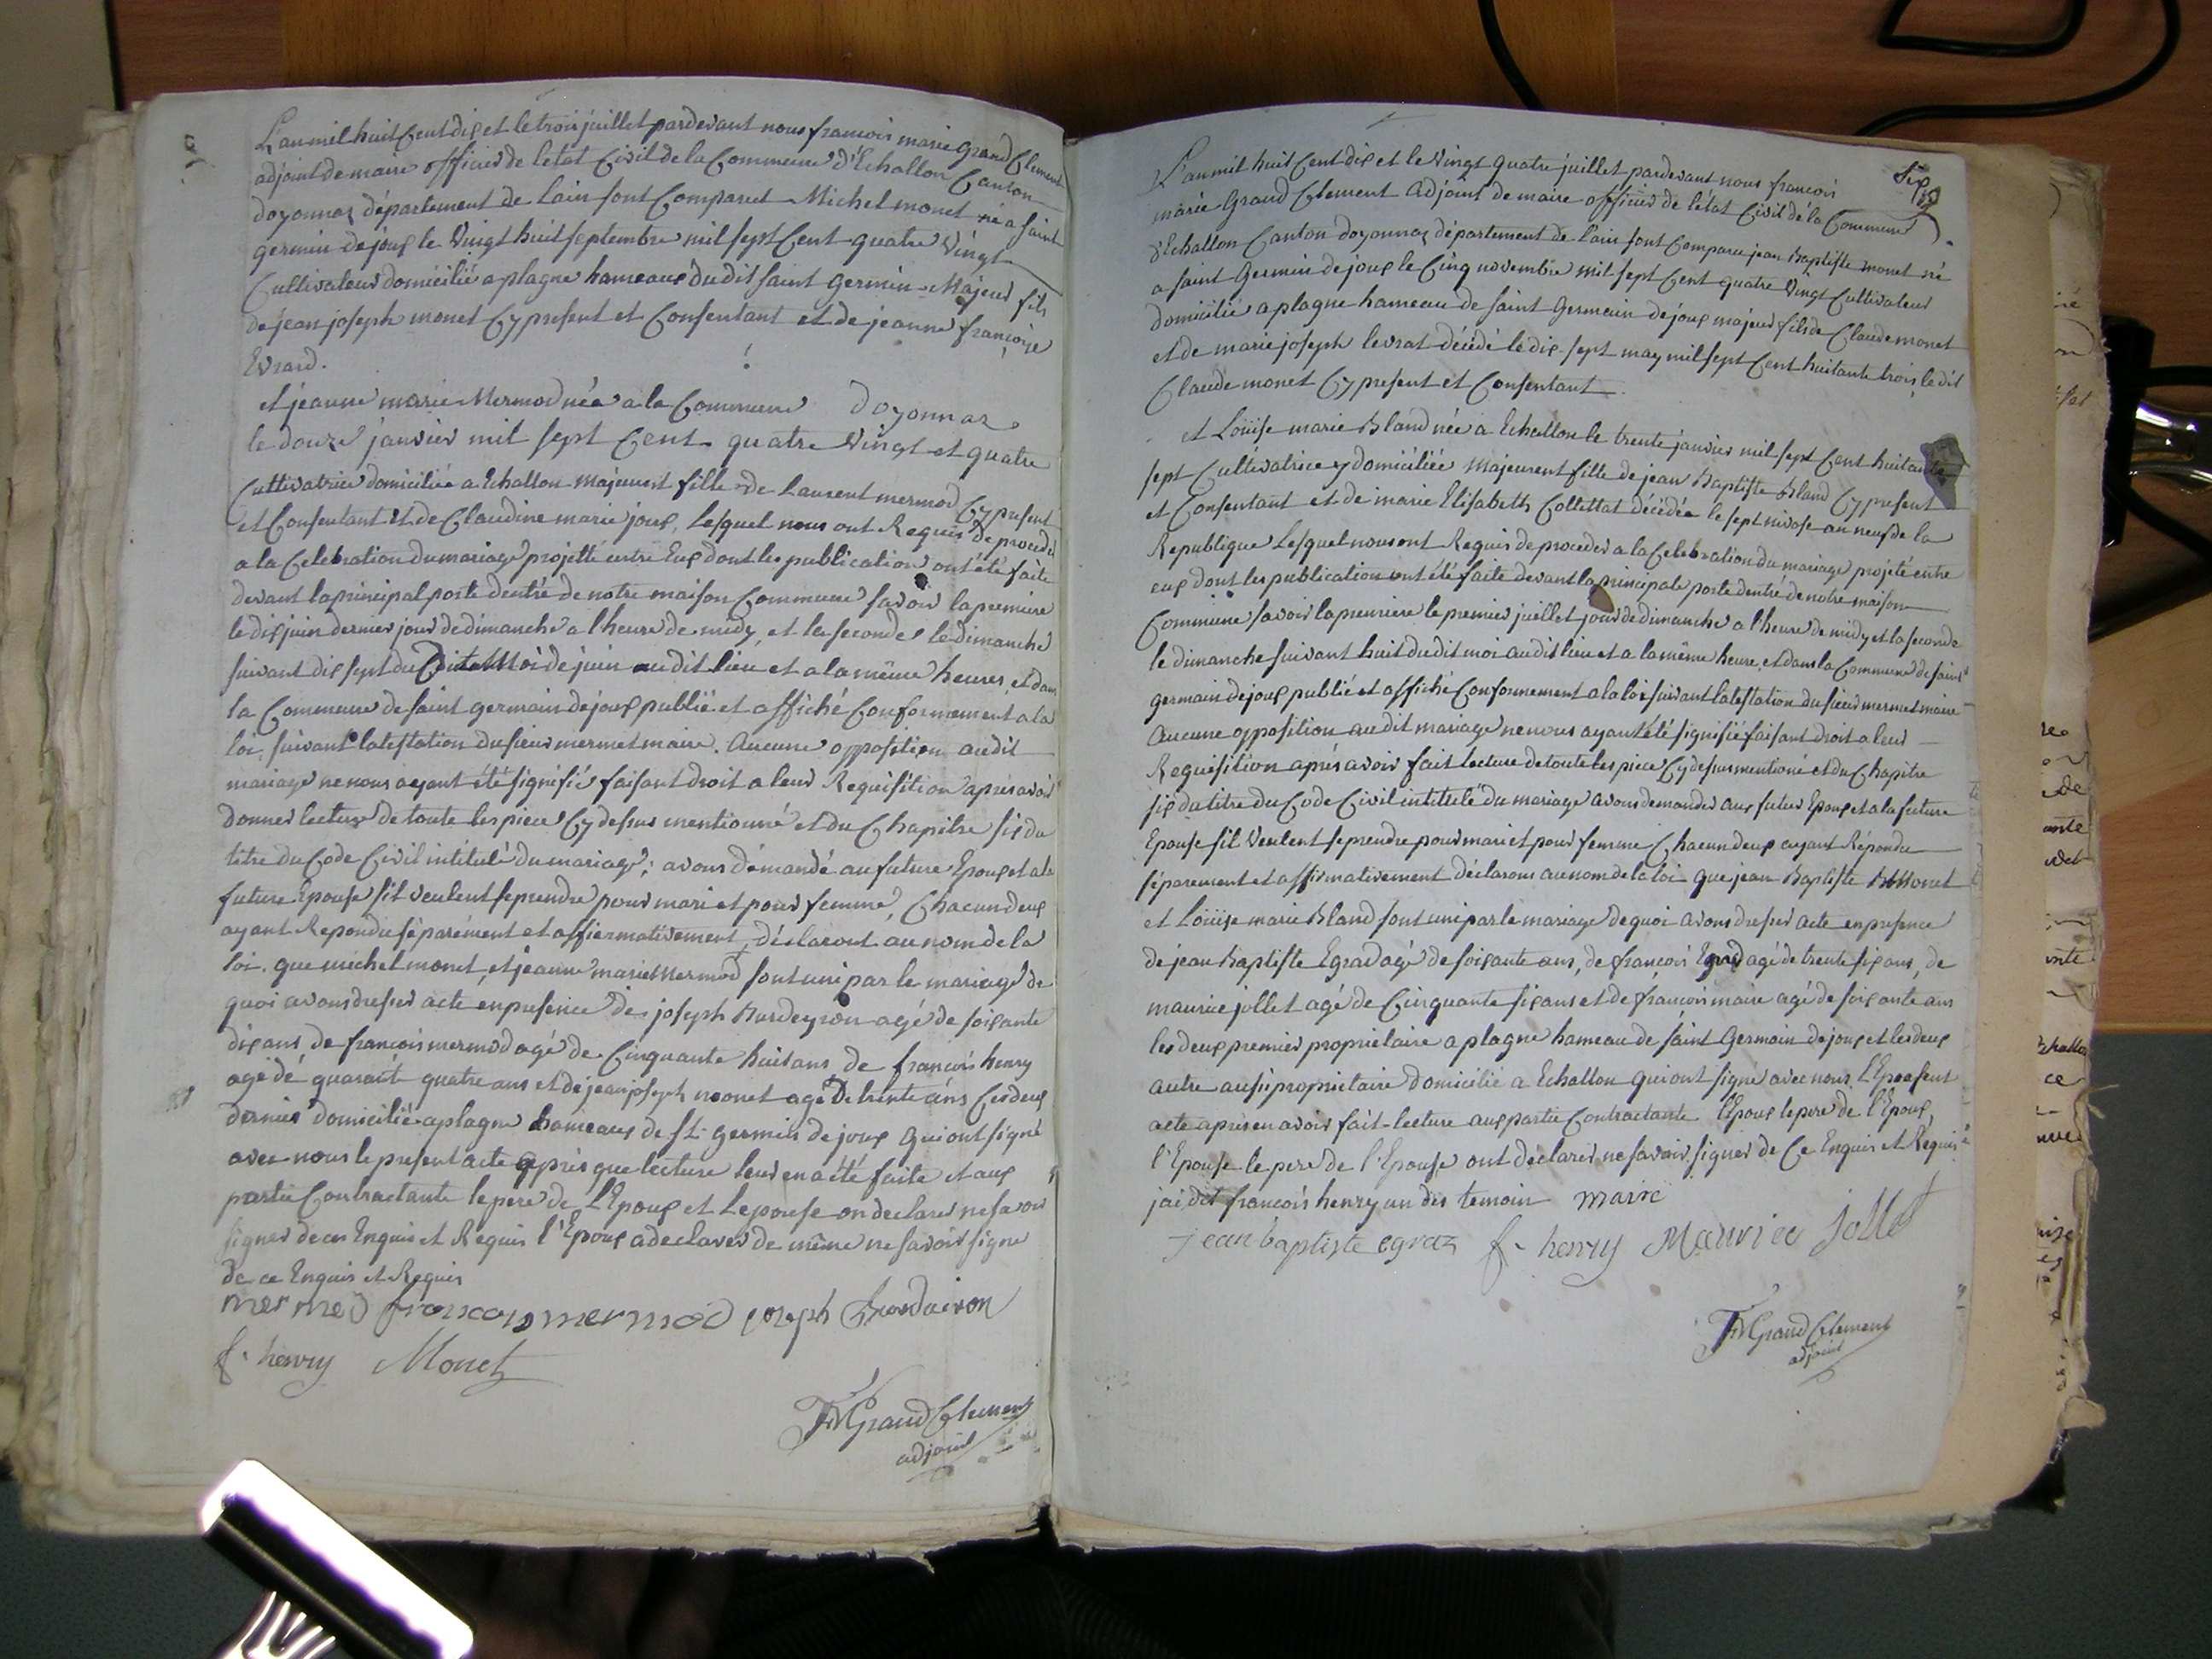 L'an mil huit Cent dix et le trois juillet pardevant nous francois marie Grand Clement
adjoint de maire officier de letat Civil de la Commune d'Echallon Canton
doyonnaz département de lain sont Comparut Michel monet né a saint
germin de joux le Vingt huit septembre mil sept Cent quatre Vingt
Cultivateur domicilié a plagne hameaux du dit saint germin Majeur fils
de jean joseph monet Cy present et Consentant et de jeanne françoise
Evrard.
et jeanne marie Mermod née a la Commune doyonnaz
le douze janvier mil sept Cent quatre Vingt et quatre
Cultivatrice domiciliée a Echallon majeurest fille de Laurent mermod Cy present
et Consentant et de Claudine marie joux, lesquel nous ont Requis de procedé
a la Celebration du mariage projetté entre Eux dont les publication ont été faite
devant la principal porte dentré de notre maison Commune savoir la premiere
le dix juin dernier jour de dimanche a l'heure de midy, et la seconde le dimanche
suivant dix sept du Moi de juin audit lieu et a la même heures, et dans
la Commune de saint germain de joux publié et affiché Conformement a la
loi suivant latestation du sieur mermet maire. Aucune opposition audit
mariage ne nous ayant été signifié faisant droit a leur Requisition aprés avoir
donner lecture de toute les piece Cy desus mentionné et du Chapitre six du
titre du Code Civil intitulé du mariage; avons démandé au future Epoux et a la
future Epouse sil veulent se prendre pour mari et pour femme, Chacun deux
ayant Repondu séparément et affiermativement, déclaront au nom de la
loi. que michel monet, et jeanne marie Mermod sont uni par le mariage de
quoi avons dreser acte en presence de joseph Burdeyron agé de soixante
dix ans de francois mermod agé de Cinquante huit ans de francois henry
agé dé quarante quatre ans et de jean joseph monet agé De trente ans Ces deux
dernier domicilié a plagne hameaux de St germin de joux Qui ont signé
avec nous le present acte aprés que lecture leur en a été faite et aux
partie Contractante le pere de L'Epoux et Lepouse on declarer ne savoir
signer de ce Enquis et Requis l'Epoux a declarer de même ne savoir signe
de ce Enquis et Requis
mermod francois mermod joseph Burdairon
f. henry Monet
FMGrand Clement
adjoint
Six
L'an mil huit Cent dix et le Vingt quatre juillet pardevant nous francois
marie Grand Clement Adjoint de maire officier de létat Civil de la Commune
d'Echallon Canton doyonnaz département de l'ain sont Comparu jean Baptiste monet né
a saint Germin de joux le Cinq novembre mil sept Cent quatre Vingt Cultivateur
domicilié a plagne hameau de saint Germain de joux majeur fils de Claude monet
et de marie joseph levrat décédé le dix-sept may mil sept Cent huitante trois, le dit
Claude monet Cy present et Consentant
et Loüise marie Bland née a Echallon le trente janvier mil sept Cent huitante
sept Cultivatrice y domiciliée Majeurent fille de jean Baptiste Bland Cy present
et Consentant et de marie Elisabeth Collettat décédée le sept nivose an neuf de la
Republique Lesquel nous ont Requis de proceder a la Celebration du mariage projeté entre
eux dont les publication ont été faite devant la principale porte dentré de notre maison
Commune savoir la premiere le premier juillet jour de dimanche a l'heure de midy et la seconde
le dimanche suivant huit du dit moi audit lieu et a la même heure, et dans la Commune de saint
germain de joux publié et affiché Conformement a la loi suivant latestation du sieur mermet maire
Aucune opposition audit mariage ne nous ayant été signifié faisant droit a leur
Requisition aprés avoir fait lecture de toute les piece Cy desus mentioné et du Chapitre
six du titre du Code Civil intitulé du mariage avons demander aux futur Epoux et a la future
Epouse sil veulent se prendre pour mari et pour femme Chacun deux ayant Répondu
séparement et affirmativement déclarons au nom de la loi que jean Baptiste Monet
et Loüise marie Bland sont uni par le mariage de quoi avons dreser acte en presence
de jean Baptiste Egraz agé de soixante ans, de françois Egraz agé de trente six ans, de
maurice jollet agé de Cinquante six ans et de francois maire agé de soixante ans
les deux premier proprietaire a plagne hameau de saint Germain de joux et les deux
autre ausi proprietaire domicilié a Echallon qui ont signé avec nous LEpresent
acte aprés en avoir fait lecture aux partie Contractante l'Epoux le pere de l'Epoux,
l'Epouse le pere de l'Epouse ont déclarer ne savoir signer de Ce Enquis et Requis
jai dit francois henry un des temoin maire
jean baptiste egraz f. henry Maurice Jollet
FMGrand Clement
adjoint